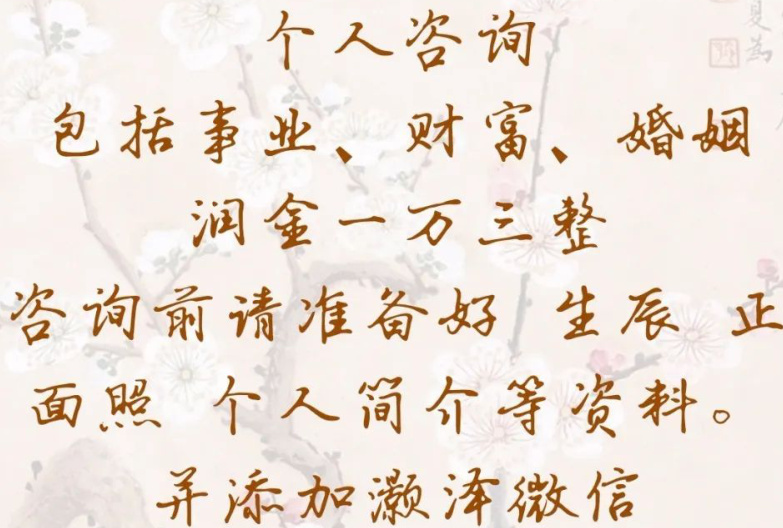 个人咨询
包括事业、财富、婚姻
润金一万三整
咨询前请准备好 生辰 正
面照 个人简介等资料。
并添加灏泽微信